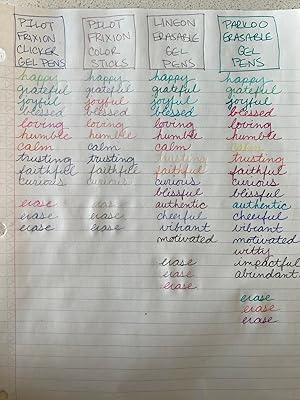 PILOT
FRIXION
CLICKER
GEL PENS
happy
grateful
joyful
blessed
loving
humble
calm
trusting
faithful
curious
erase
erase
erase
PILOT
FRIXION
COLOR
STICKS
happy
grateful
joyful
blessed
loving
humble
calm
trusting
faithful
curious
erase
erase
erase
LINEON
ERASABLE
GEL
PENS
happy
grateful
joyful
blessed
loving
humble
calm
trusting
faithful
curious
blissful
authentic
cheerful
vibrant
motivated
erase
erase
erase
PARKOO
ERASABLE
GEL
PENS
happy
grateful
joyful
blessed
loving
humble
calm
trusting
faithful
curious
blissful
authentic
cheerful
vibrant
motivated
witty
impactful
abundant
erase
erase
erase